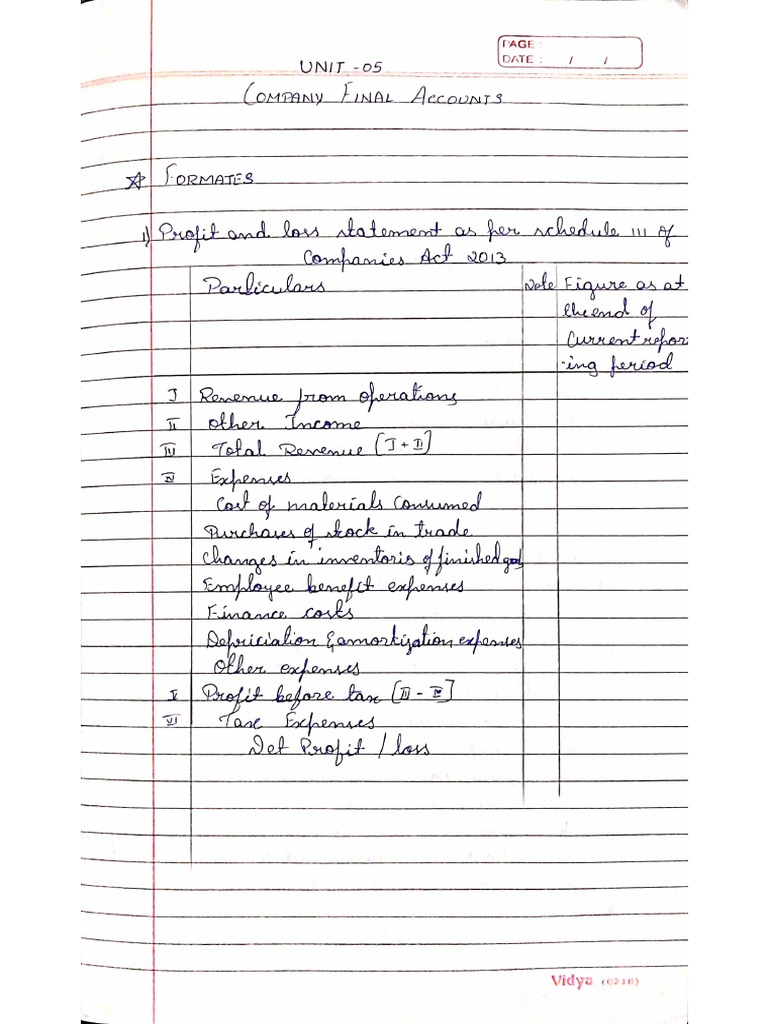 PAGE :
DATE : / /
UNIT - 05
COMPANY FINAL ACCOUNTS
☆ FORMATES
1) Profit and loss statement as per schedule III of
Companies Act 2013
Particulars Note Figure as at
the end of
Current repor
-ing period
I Revenue from operations
II Other Income
III Total Revenue [I + II]
IV Expenses
Cost of materials Consumed
Purchases of stock in trade
Changes in inventoris of finished
Employee benefit expenses
Finance costs
Depriciation & amortization expenses
Other expenses
V Profit before tax [III - IV]
VI Tax Expenses
Net Profit / loss
Vidya (0216)